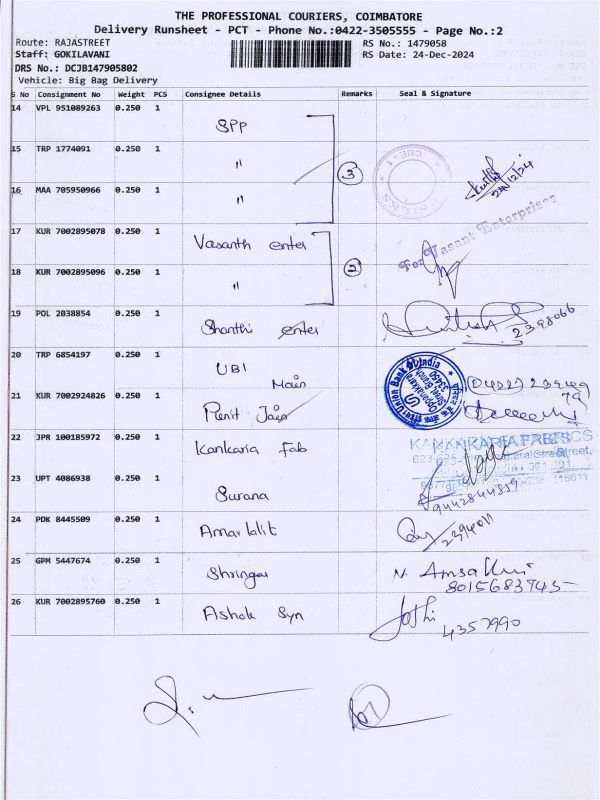 THE PROFESSIONAL COURIERS, COIMBATORE
Delivery Runsheet - PCT - Phone No.:0422-3505555 - Page No.:2
Route: RAJASTREET RS No.: 1479058
Staff: GOKILAVANI RS Date: 24-Dec-2024
DRS No.: DCJB147905802
Vehicle: Big Bag Delivery
S No Consignment No Weight PCS Consignee Details Remarks Seal & Signature
14 VPL 951089263 0.250 1 SPP
15 TRP 1774091 0.250 1 " 3 CBE-1
16 MAA 705950966 0.250 1 " SILKS 24/12/24
17 KUR 7002895078 0.250 1 Vasanth enter For Vasant Enterprises
18 KUR 7002895096 0.250 1 " 2
19 POL 2038854 0.250 1 Shanthi enter 2398066
20 TRP 6854197 0.250 1 UBI Main Union Bank of India
21 KUR 7002924826 0.250 1 Punit Jain
22 JPR 100185972 0.250 1 Kankaria Fab
23 UPT 4086938 0.250 1 Surana 9442844859
24 PDK 8445509 0.250 1 Amar lalit 2394011
25 GPM 5447674 0.250 1 Shringar N. Amsa 8015683945
26 KUR 7002895760 0.250 1 Ashok Syn Joshi 4357990